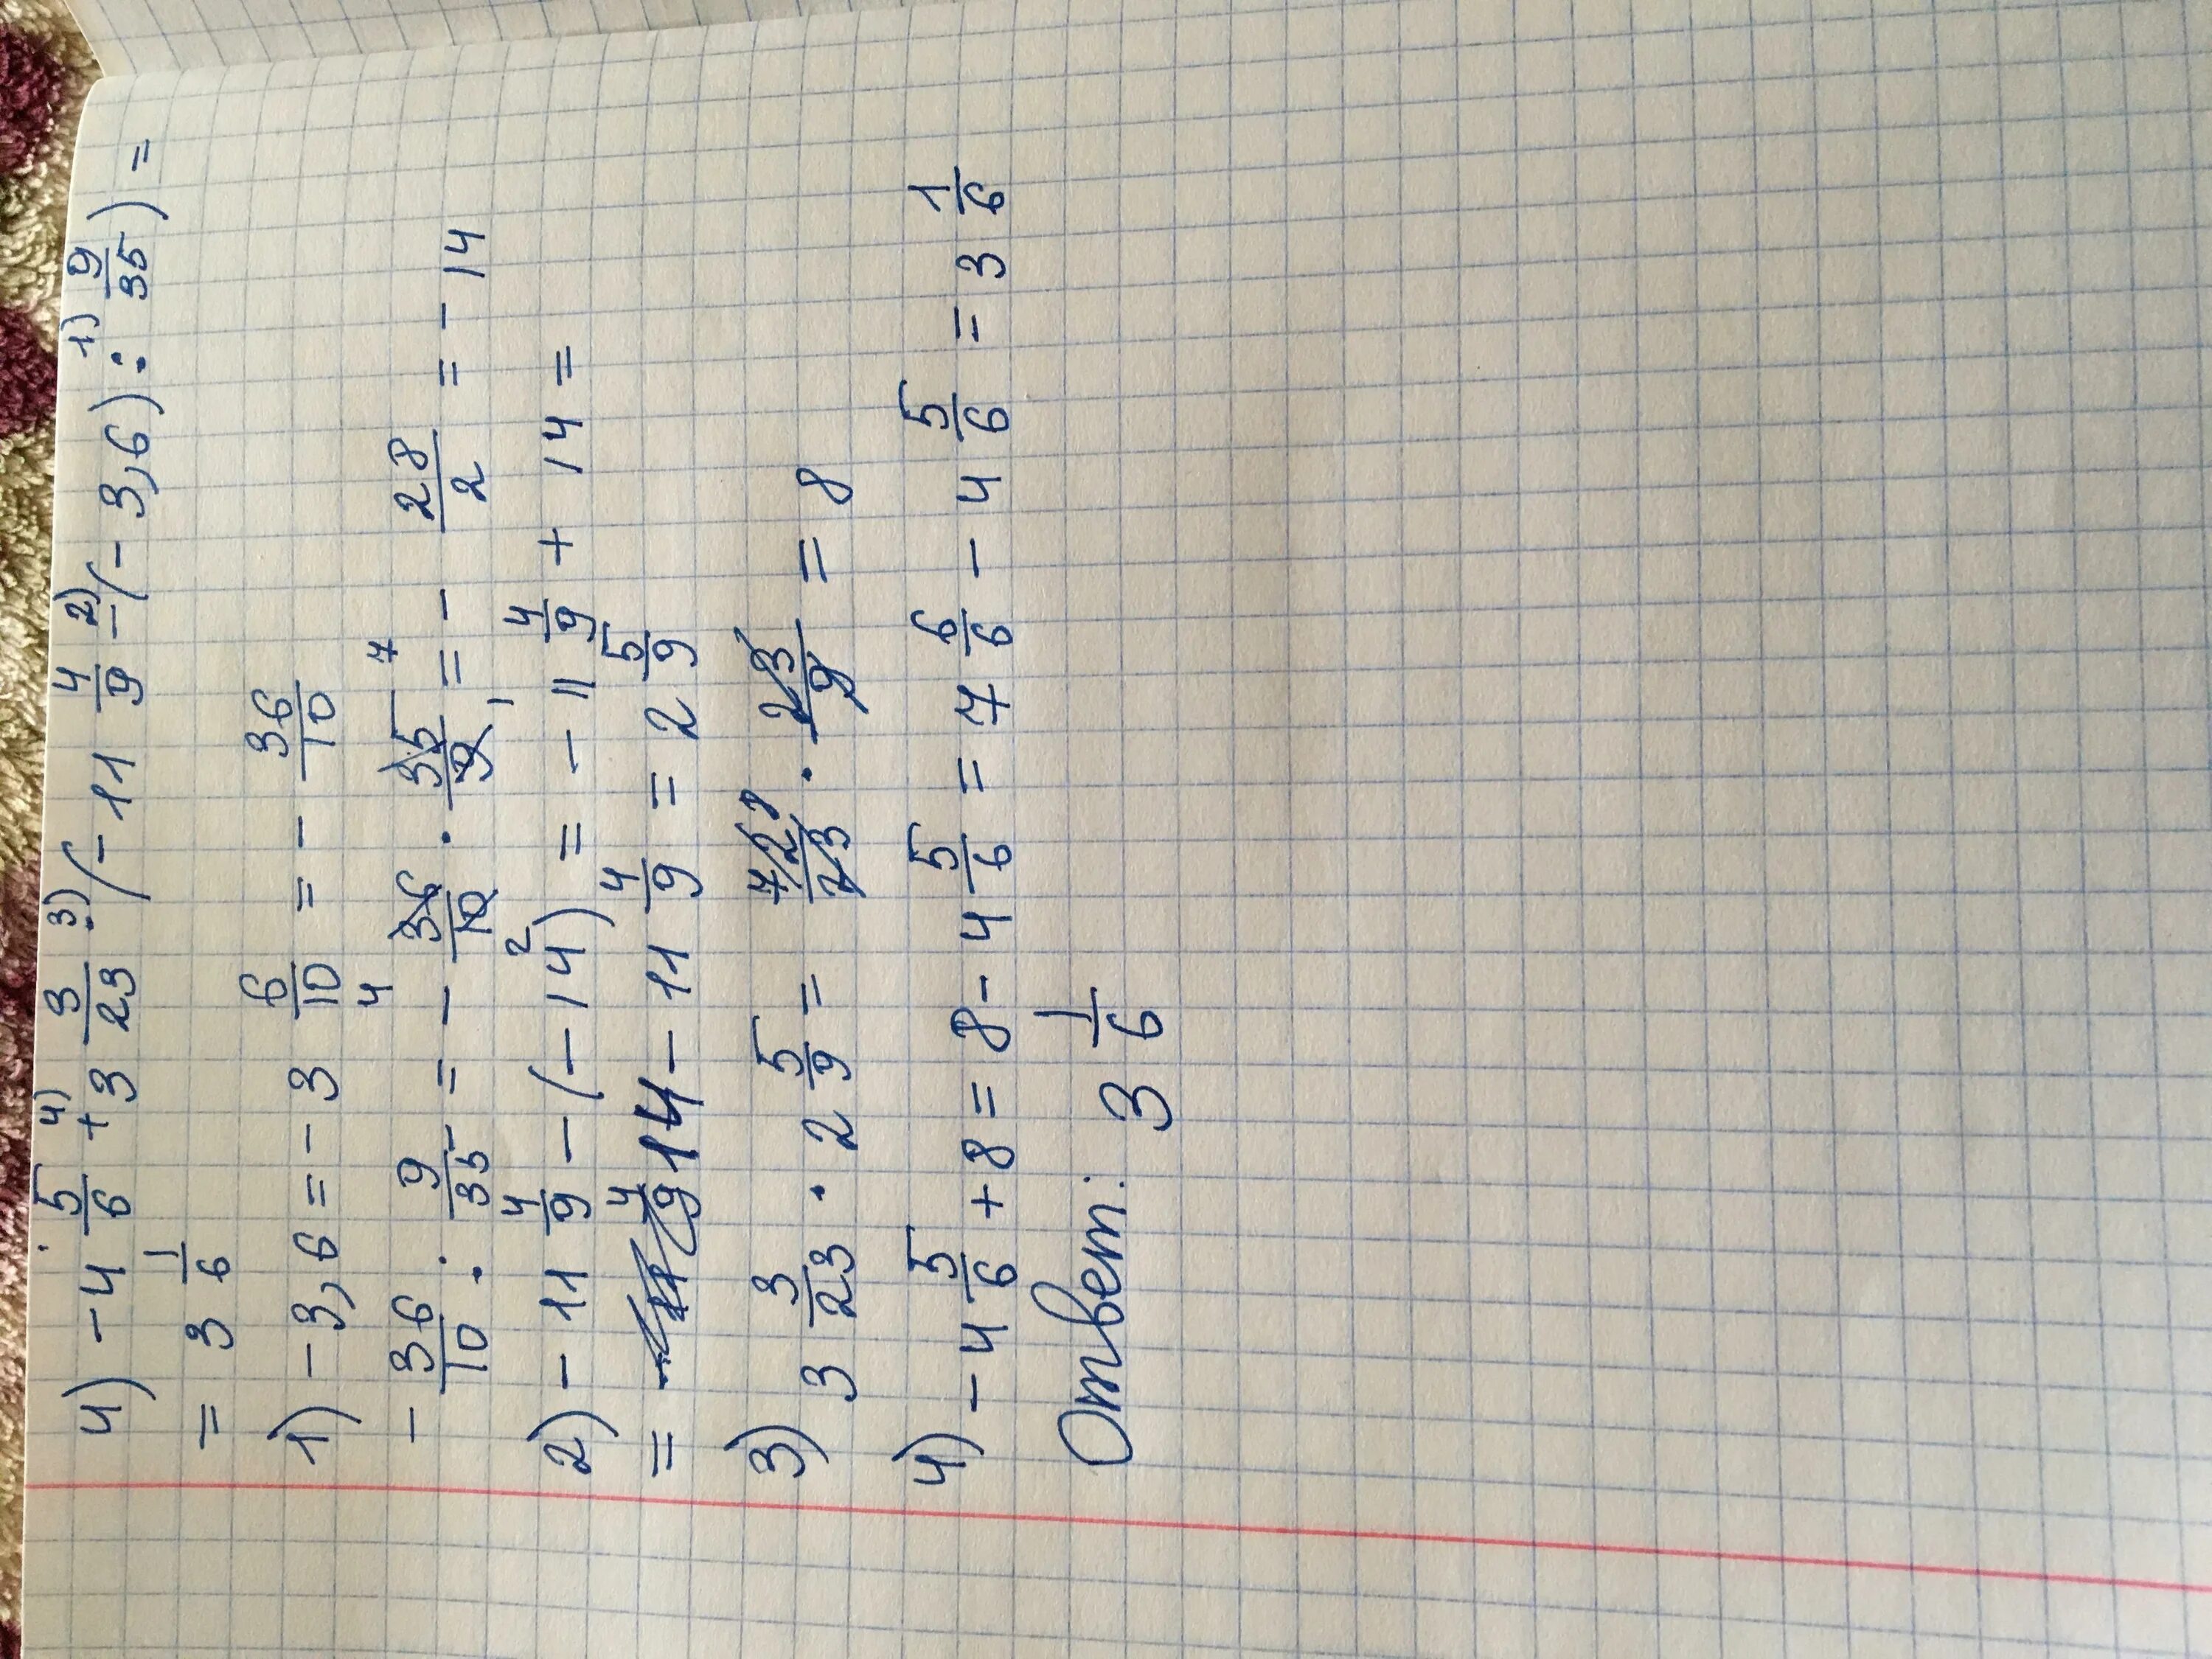 4) -4 5/6 +4) 3 3/23 ·3) (-11 4/9 -2) (-3,6) :1) 9/35) =
= 3 1/6
1) -3,6 = -3 6/10 = - 36/10
- 36/10 : 9/35 = - 36/10 4 2 · 35/9 7 1 = - 28/2 = -14
2) -11 4/9 - (-14) = -11 4/9 + 14 =
= 14 - 11 4/9 = 2 5/9
3) 3 3/23 · 2 5/9 = 72/23 8 · 23/9 = 8
4) -4 5/6 + 8 = 8 - 4 5/6 = 7 6/6 - 4 5/6 = 3 1/6
Ответ: 3 1/6